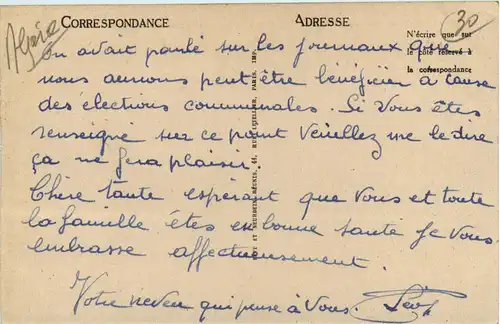 Algérie
CORRESPONDANCE
ADRESSE
30
N'écrire que sur
le côté réservé à
la correspondance
on avait parlé sur les journaux que
nous aurions peut être bénéficier à cause
des élections communales. Si Vous êtes
renseigné sur ce point Veuillez me le dire
ça me fera plaisir.
Chère tante espérant que Vous et toute
la famille êtes en bonne santé Je Vous
embrasse affectueusement.
Votre neveu qui pense à Vous.